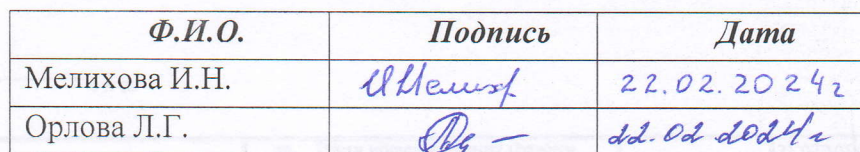 Ф.И.О. Подпись Дата
Мелихова И.Н. 22.02.2024г
Орлова Л.Г. 22.02.2024г